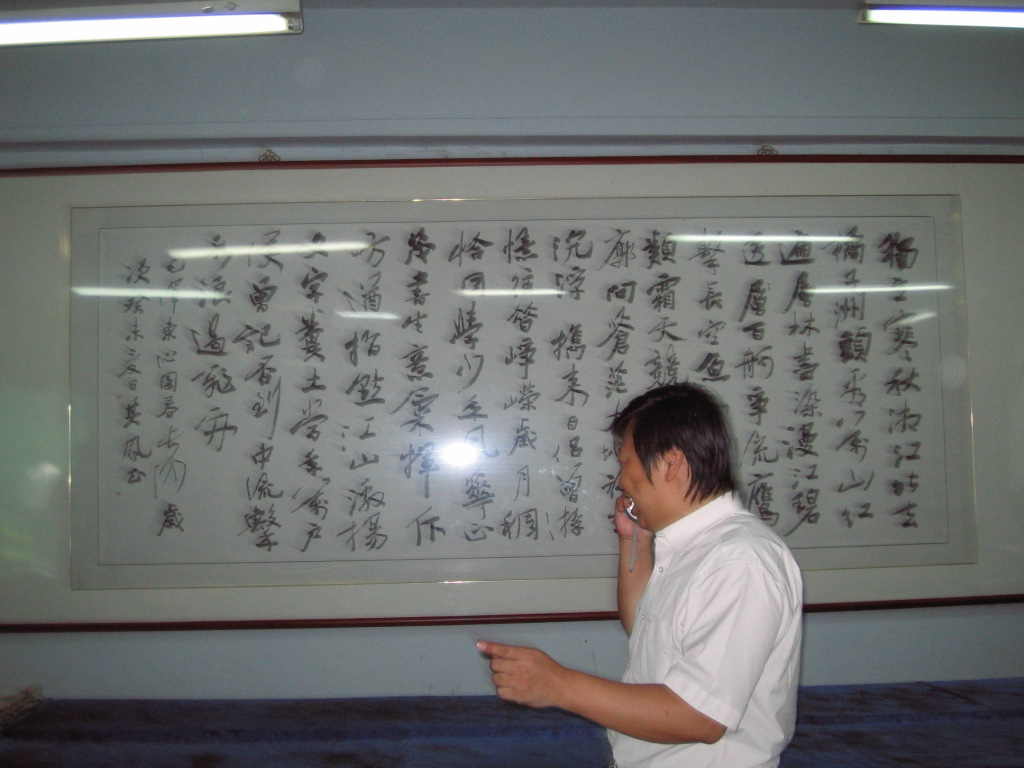 獨立寒秋湘江北去
橘子洲頭看萬山紅
遍層林盡染漫江碧
透層百舸爭流鷹
擊長空魚
類霜天競
廓問蒼茫大地
沉浮攜來百侶曾遊
憶往昔崢嶸歲月稠
恰同學少年風華正
茂書生意氣揮斥
方遒指點江山激揚
文字糞土當年萬戶
侯曾記否到中流擊
水浪遏飛舟
毛澤東沁園春長沙歲
次癸未夏日